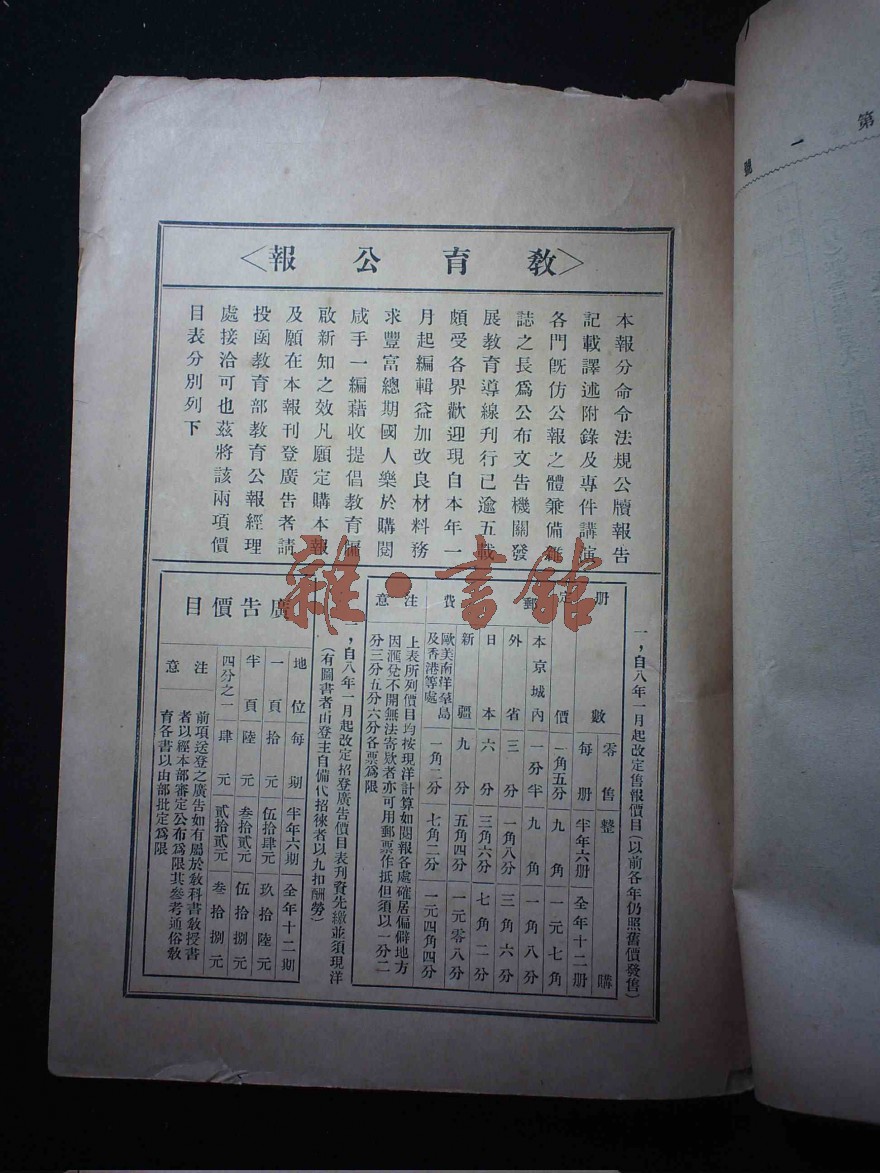 教育公報
本報分命令法規公牘報告
記載譯述附錄及專件講演
各門旣仿公報之體兼備雜
誌之長爲公布文告機關發
展教育導線刊行已逾五載
頗受各界歡迎現自本年一
月起編輯益加改良材料務
求豐富總期國人樂於購閱
咸手一編藉收提倡教育牖
啟新知之效凡願定購本報
及願在本報刊登廣告者請
投函教育部教育公報經理
處接洽可也茲將該兩項價
目表分別列下
一，自八年一月起改定售報價目（以前各年仍照舊價發售）
册數 零售 整購
每册 半年六册 全年十二册
定價 一角五分 九角 一元七角
郵費
本京城內 一分半 九分 一角八分
外省 三分 一角八分 三角六分
日本 六分 三角六分 七角二分
新疆 九分 五角四分 一元零八分
歐美南洋羣島及香港等處 一角二分 七角二分 一元四角四分
注意
上表所列價目均按現洋計算如閱報各處確居偏僻地方
因滙兌不開無法寄欵者亦可用郵票作抵但須以一分二
分三分五分六分各票爲限
一，自八年一月起改定招登廣告價目表刋資先繳並須現洋
（有圖書者由登主自備代招徠者以九扣酬勞）
廣告價目
地位 每期 半年六期 全年十二期
一頁 拾元 伍拾肆元 玖拾陸元
半頁 陸元 叁拾貳元 伍拾捌元
四分之一 肆元 貳拾貳元 叁拾捌元
注意
前項送登之廣告如有屬於敎科書敎授書
者以經本部審定公布爲限其參考通俗敎
育各書以由部批定爲限
第一號
雜·書館